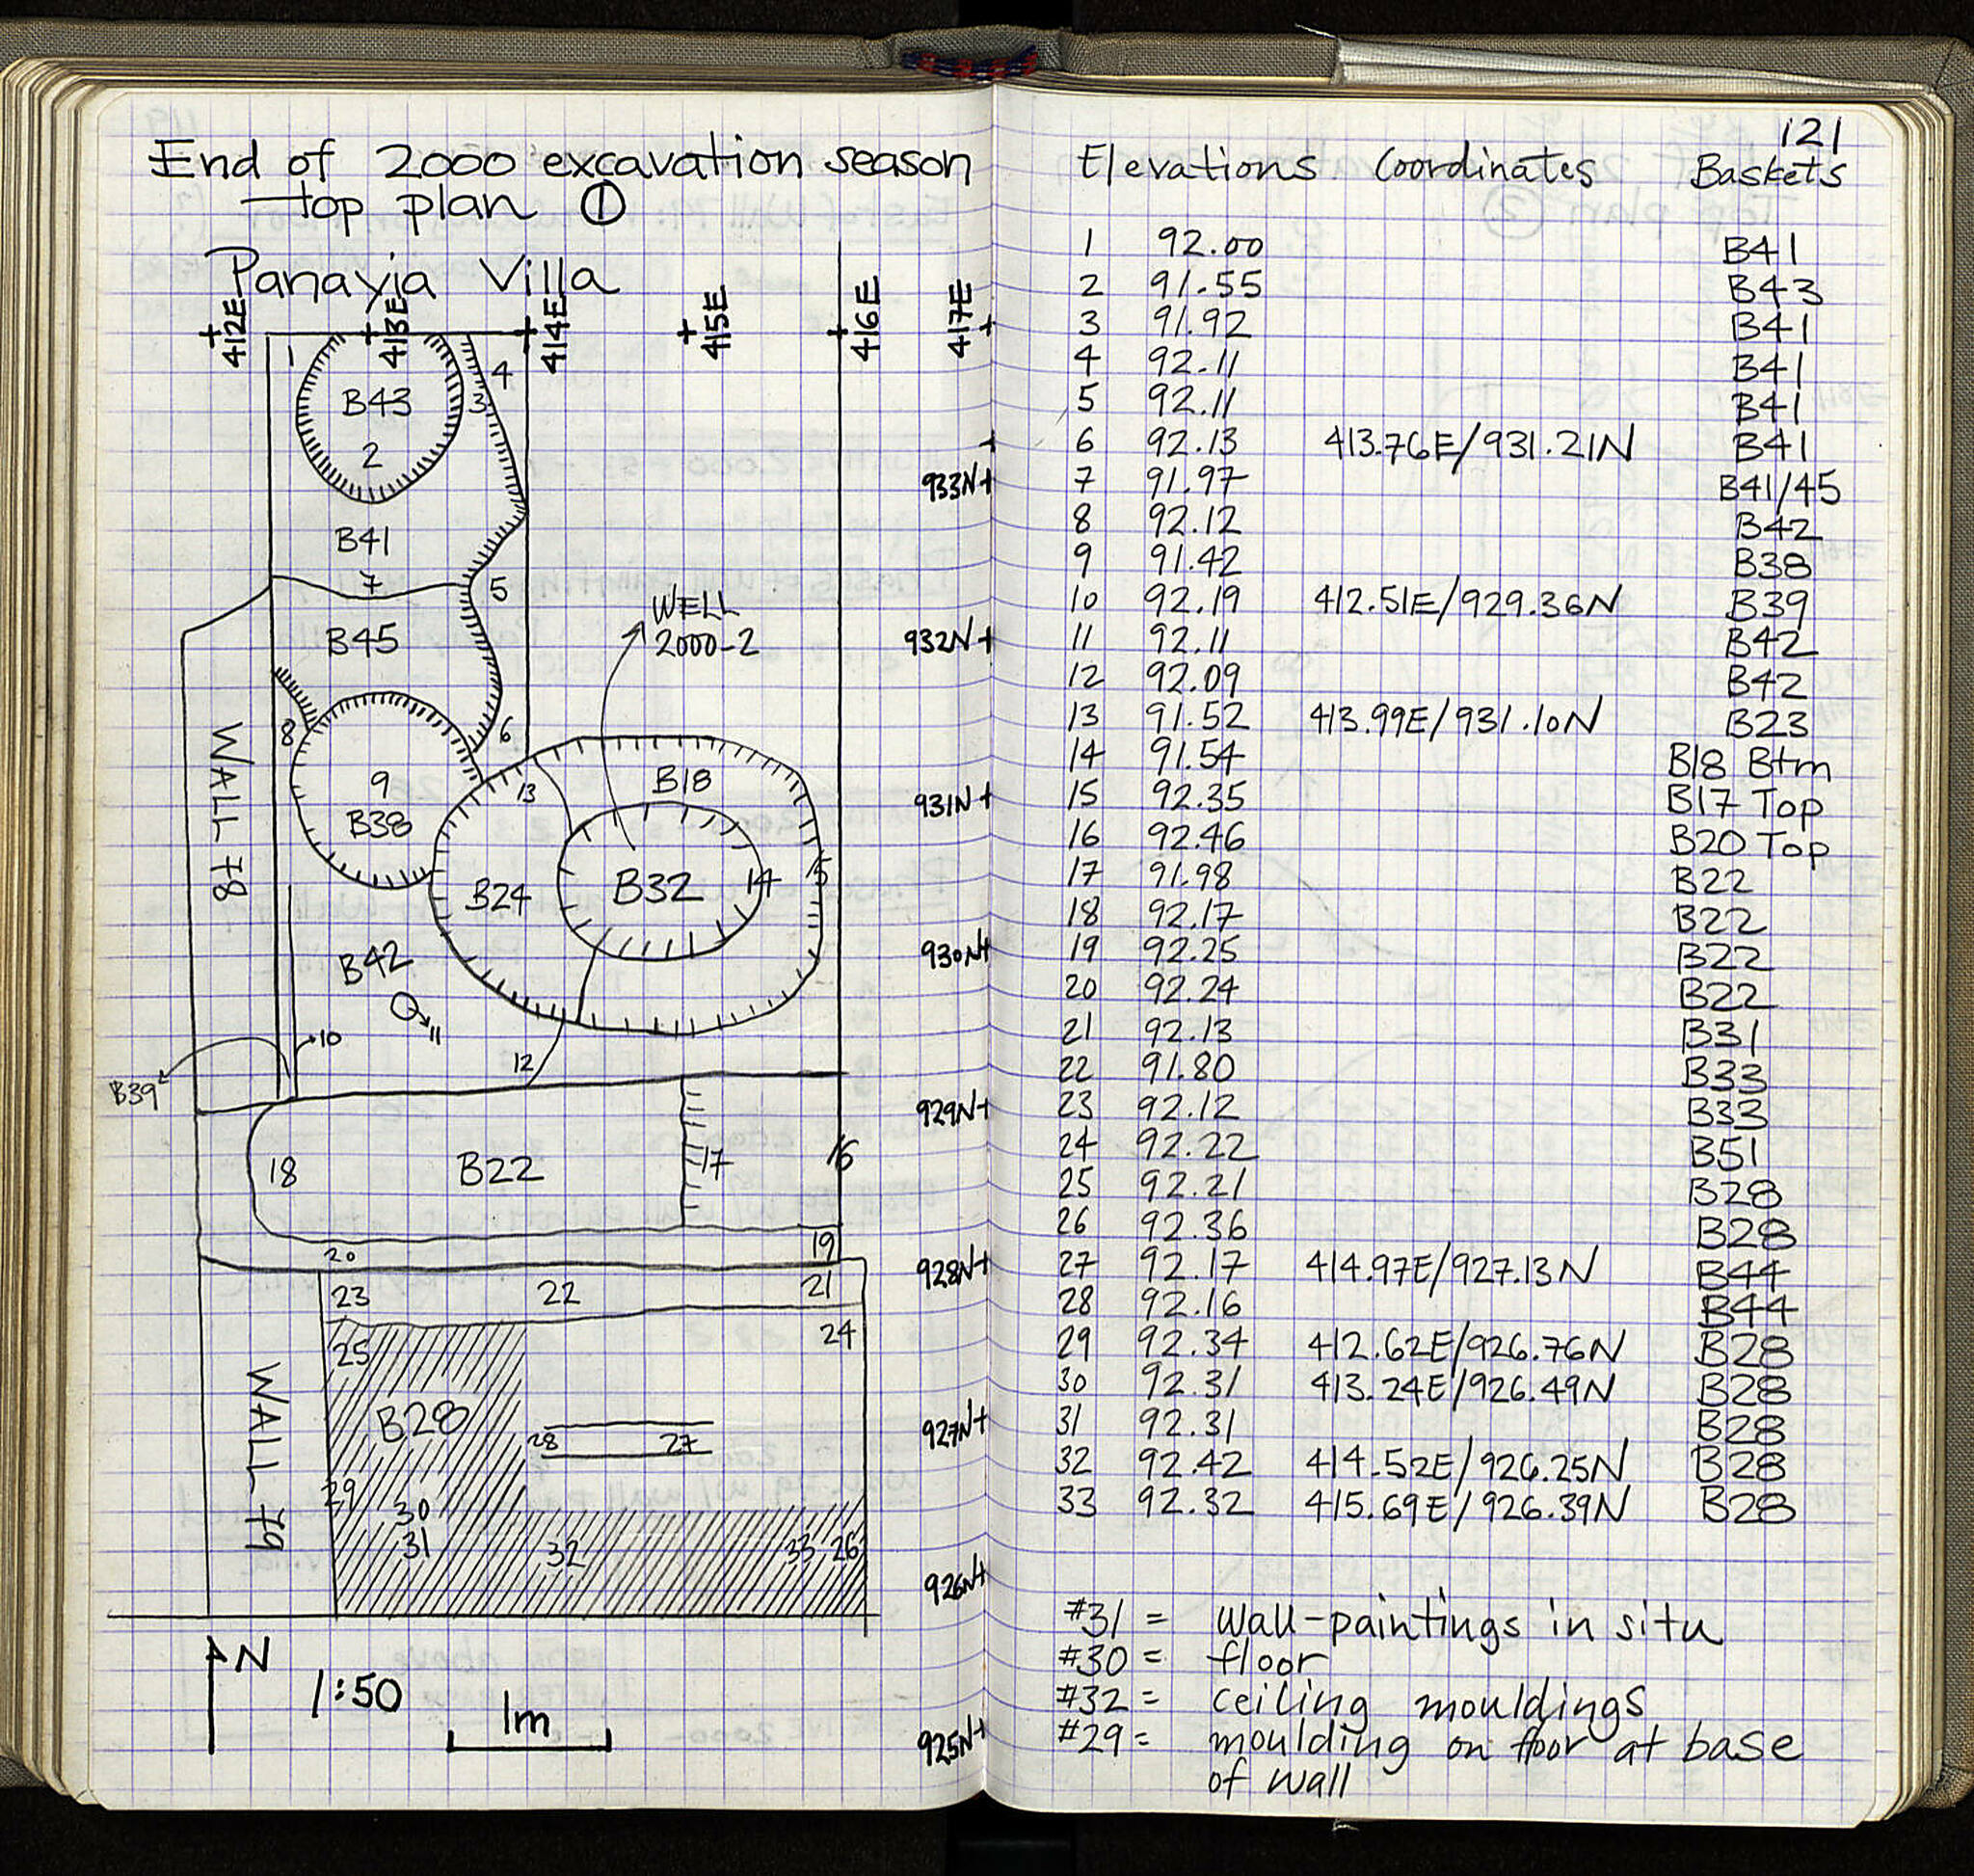 End of 2000 excavation season
top plan ①
Panayia Villa
412E
413E
414E
415E
416E
417E
1
4
B43
3
2
933N
B41
7
5
WELL
2000-2
B45
932N
6
8
WALL 78
9
B38
13
B18
931N
B24
B32
14
15
B42
930N
11
10
12
B39
929N
18
B22
17
16
20
19
928N
23
22
21
25
24
B28
28
27
927N
WALL 79
29
30
31
32
33
26
926N
N
1:50
1m
925N
121
Elevations Coordinates Baskets
1 92.00 B41
2 91.55 B43
3 91.92 B41
4 92.11 B41
5 92.11 B41
6 92.13 413.76E/931.21N B41
7 91.97 B41/45
8 92.12 B42
9 91.42 B38
10 92.19 412.51E/929.36N B39
11 92.11 B42
12 92.09 B42
13 91.52 413.99E/931.10N B23
14 91.54 B18 Btm
15 92.35 B17 Top
16 92.46 B20 Top
17 91.98 B22
18 92.17 B22
19 92.25 B22
20 92.24 B22
21 92.13 B31
22 91.80 B33
23 92.12 B33
24 92.22 B51
25 92.21 B28
26 92.36 B28
27 92.17 414.97E/927.13N B44
28 92.16 B44
29 92.34 412.62E/926.76N B28
30 92.31 413.24E/926.49N B28
31 92.31 B28
32 92.42 414.52E/926.25N B28
33 92.32 415.69E/926.39N B28
#31 = wall-paintings in situ
#30 = floor
#32 = ceiling mouldings
#29 = moulding on floor at base
of wall